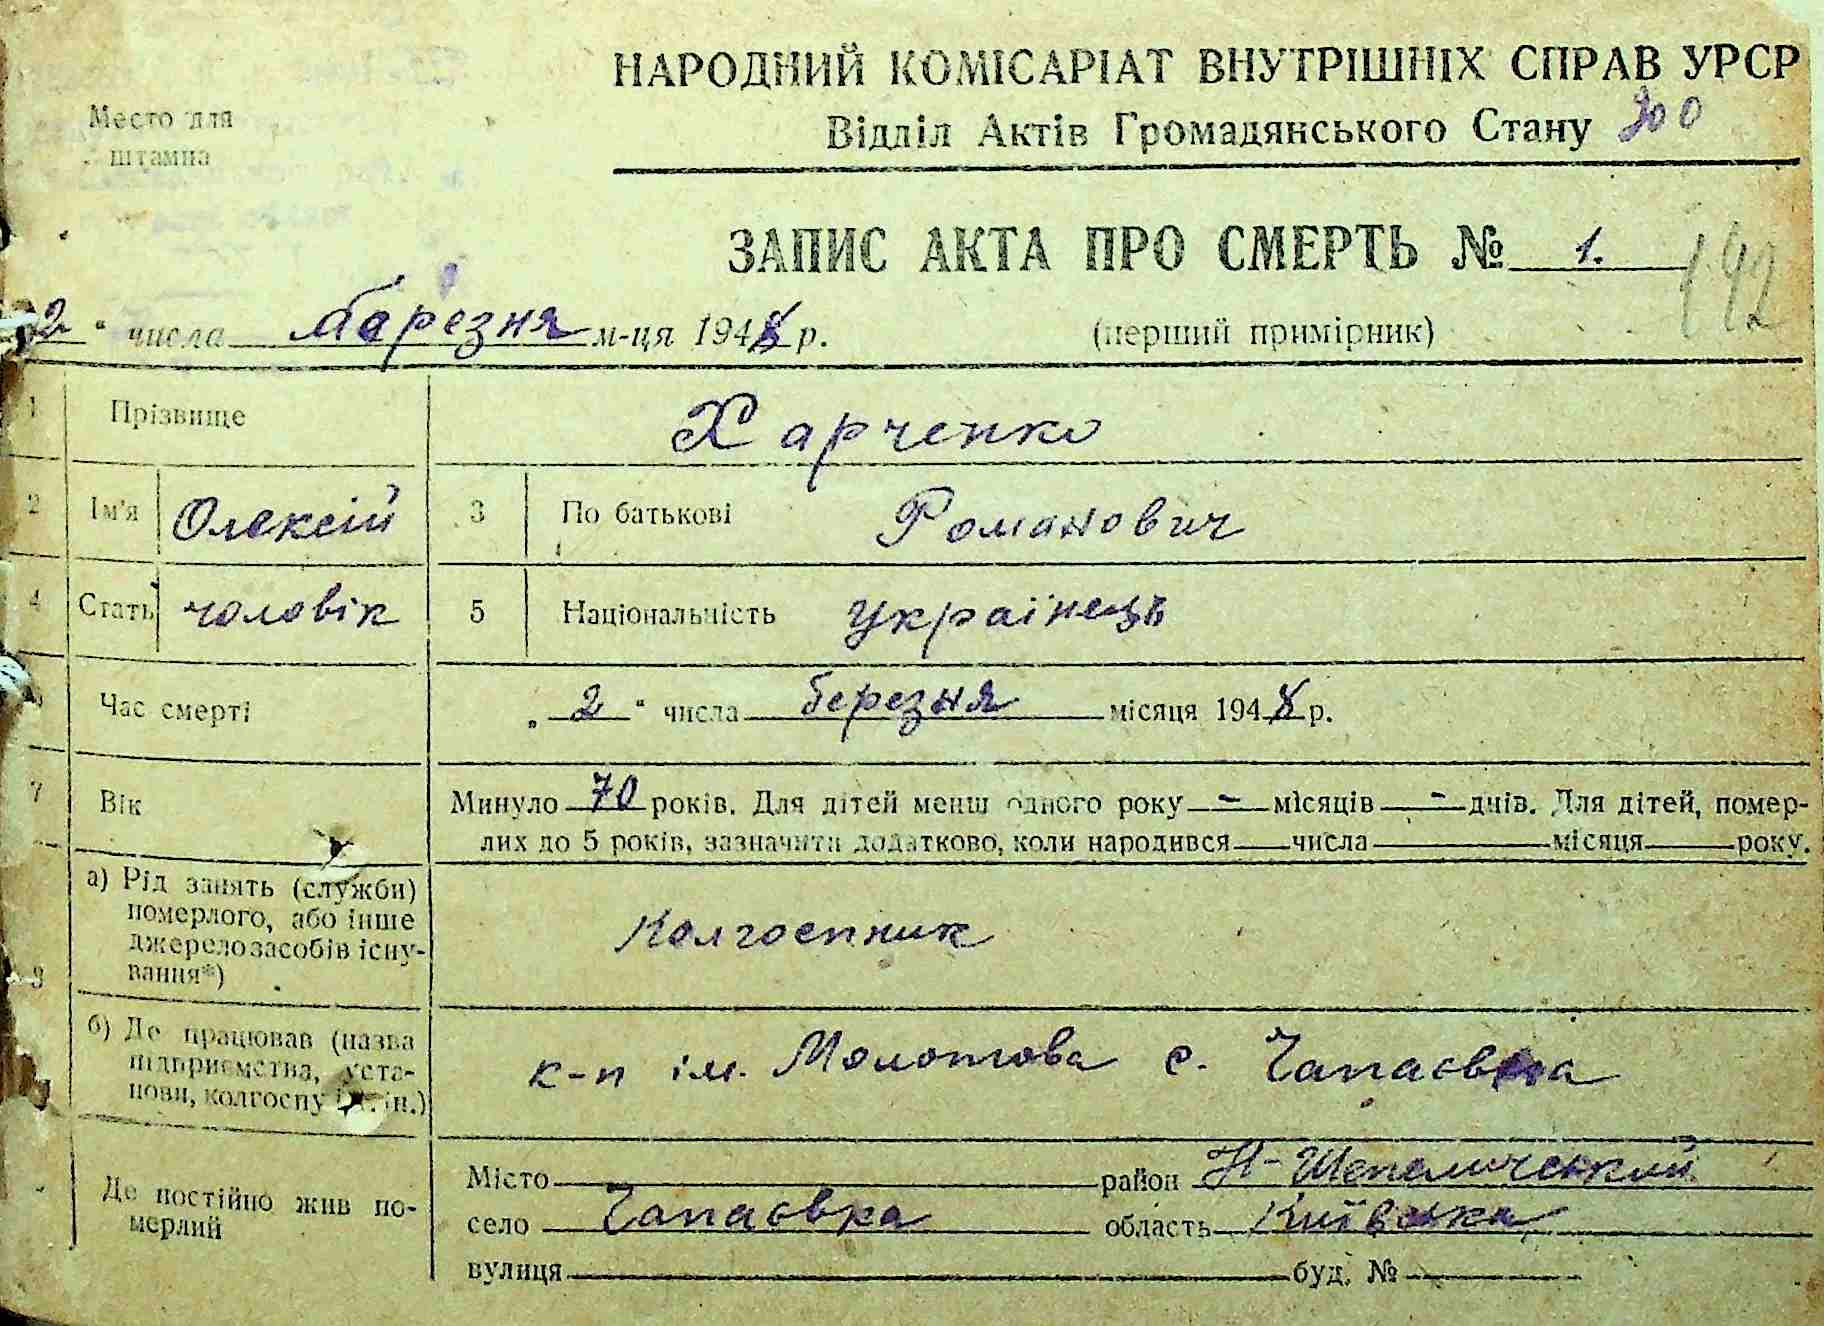 НАРОДНИЙ КОМІСАРІАТ ВНУТРІШНІХ СПРАВ УРСР
Место для
штампа
Відділ Актів Громадянського Стану 200
ЗАПИС АКТА ПРО СМЕРТЬ № 1.
192
2 " числа березня м-ця 1948 р. (перший примірник)
1 Прізвище Харченко
2 Ім'я Олексій 3 По батькові Романович
4 Стать чоловік 5 Національність українець
Час смерті „ 2 " числа березня місяця 1948 р.
7 Вік Минуло 70 років. Для дітей менш одного року - місяців - днів. Для дітей, помер-
лих до 5 років, зазначити додатково, коли народився числа місяця року.
8 а) Рід занять (служби)
померлого, або інше
джерело засобів існу-
вання*)
Колгоспник
б) Де працював (назва
підприємства, уста-
нови, колгоспу і т. ін.)
к-п ім. Молотова с. Чапаєвка
Де постійно жив по-
мерлий
Місто район Н-Шепелический
село Чапаєвка область Київська
вулиця буд. №